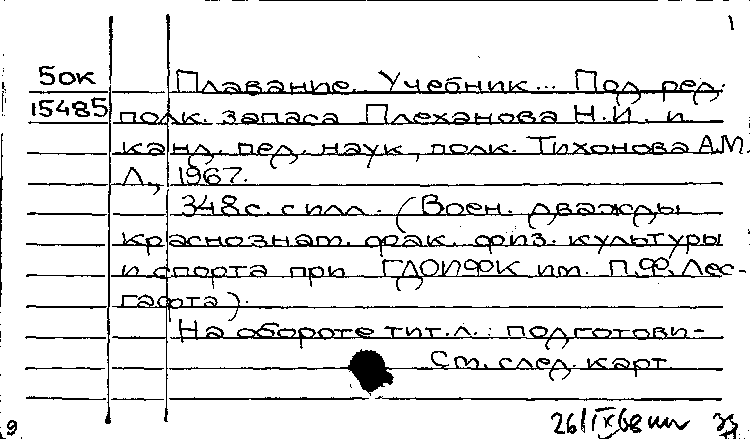 1
5ок Плавание. Учебник... Под ред.
15485 полк. запаса Плеханова Н.И. и
канд. пед. наук, полк. Тихонова А.М.
Л., 1967.
348с. с илл. (Воен. дважды
краснознам. фак. физ. культуры
и спорта при ГДОИФК им. П.Ф. Лес-
гафта).
На обороте тит. л.: подготови-
См. след. карт
9 26/IX68